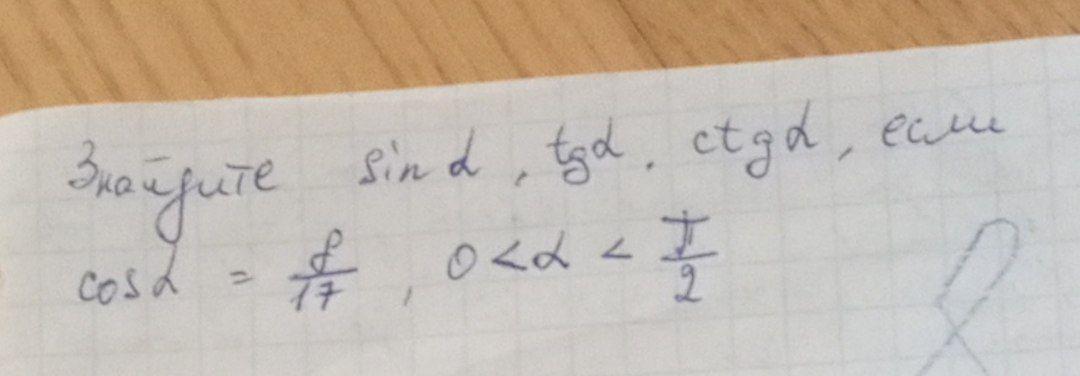 Знайдите sin α, tgα, ctgα, если
cos α = 8/17, 0 < α < π/2